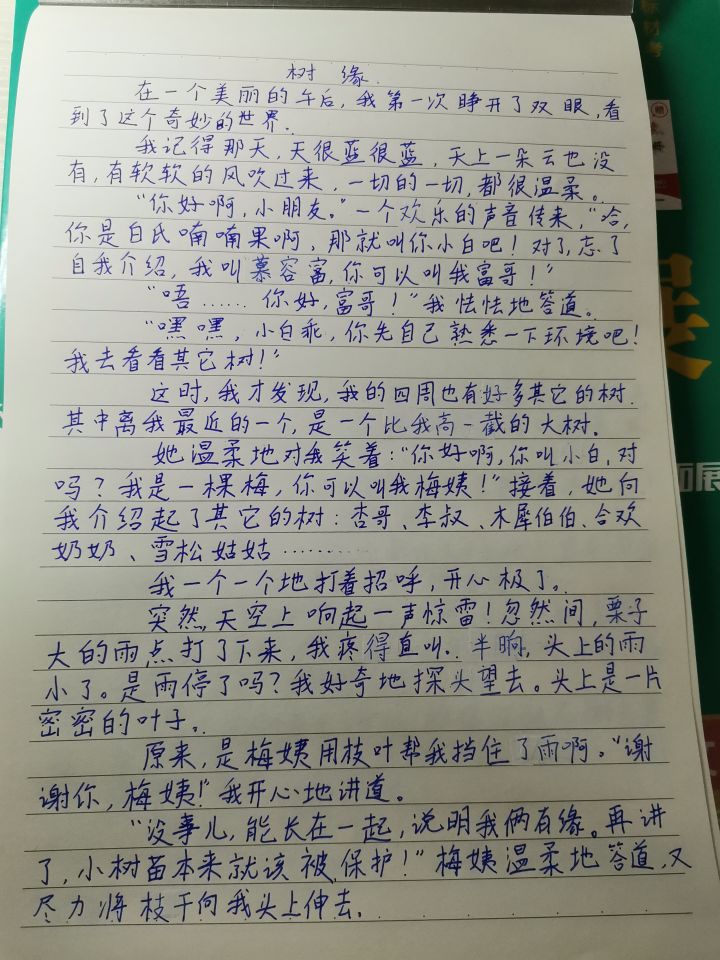 树缘
在一个美丽的午后,我第一次睁开了双眼,看
到了这个奇妙的世界。
我记得那天,天很蓝很蓝,天上一朵云也没
有,有软软的风吹过来,一切的一切,都很温柔。
“你好啊,小朋友。”一个欢乐的声音传来,“哈,
你是白氏喃喃果啊,那就叫你小白吧!对了,忘了
自我介绍,我叫慕容富,你可以叫我富哥!”
“唔……你好,富哥!”我怯怯地答道。
“嘿嘿,小白乖,你先自己熟悉一下环境吧!
我去看看其它树!”
这时,我才发现,我的四周也有好多其它的树.
其中离我最近的一个,是一个比我高一截的大树.
她温柔地对我笑着:“你好啊,你叫小白,对
吗?我是一棵梅,你可以叫我梅姨!”接着,她向
我介绍起了其它的树:杏哥、李叔、木犀伯伯、合欢
奶奶、雪松姑姑…………
我一个一个地打着招呼,开心极了。
突然,天空上响起一声惊雷!忽然间,栗子
大的雨点打了下来,我疼得直叫.半晌,头上的雨
小了。是雨停了吗?我好奇地探头望去。头上是一片
密密的叶子。
原来,是梅姨用枝叶帮我挡住了雨啊。“谢
谢你,梅姨!”我开心地讲道。
“没事儿,能长在一起,说明我俩有缘。再讲
了,小树苗本来就该被保护!”梅姨温柔地答道,又
尽力将枝干向我头上伸去.